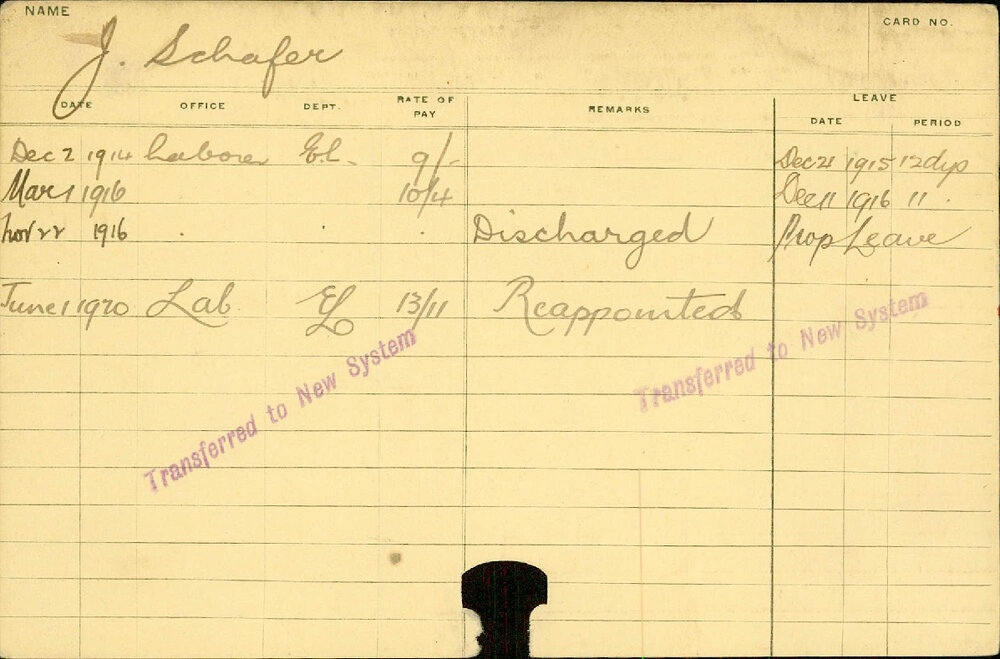 NAME
CARD NO.
J. Schafer
DATE OFFICE DEPT. RATE OF PAY REMARKS LEAVE DATE PERIOD
Dec 2 1914 Laborer El. 9/- Dec 21 1915 12 dys
Mar 1 1916 10/4 Dec 11 1916 11 .
Nov 22 1916 . . . Discharged Prop Leave
June 1 1920 Lab El 13/11 Reappointed
Transferred to New System
Transferred to New System